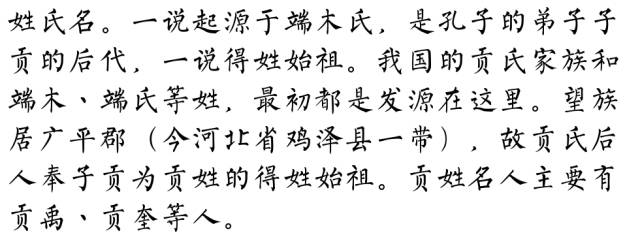 姓氏名。一说起源于端木氏，是孔子的弟子子
贡的后代，一说得姓始祖。我国的贡氏家族和
端木、端氏等姓，最初都是发源在这里。望族
居广平郡（今河北省鸡泽县一带），故贡氏后
人奉子贡为贡姓的得姓始祖。贡姓名人主要有
贡禹、贡奎等人。